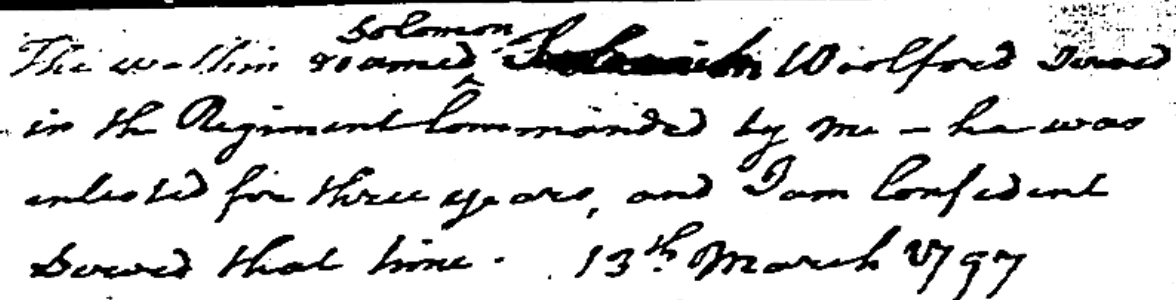 The within named Solomon Woolford Served
in the Regiment Commanded by me – he was
enlested for three years, and I am Confident
Served that time. 13th March 1797